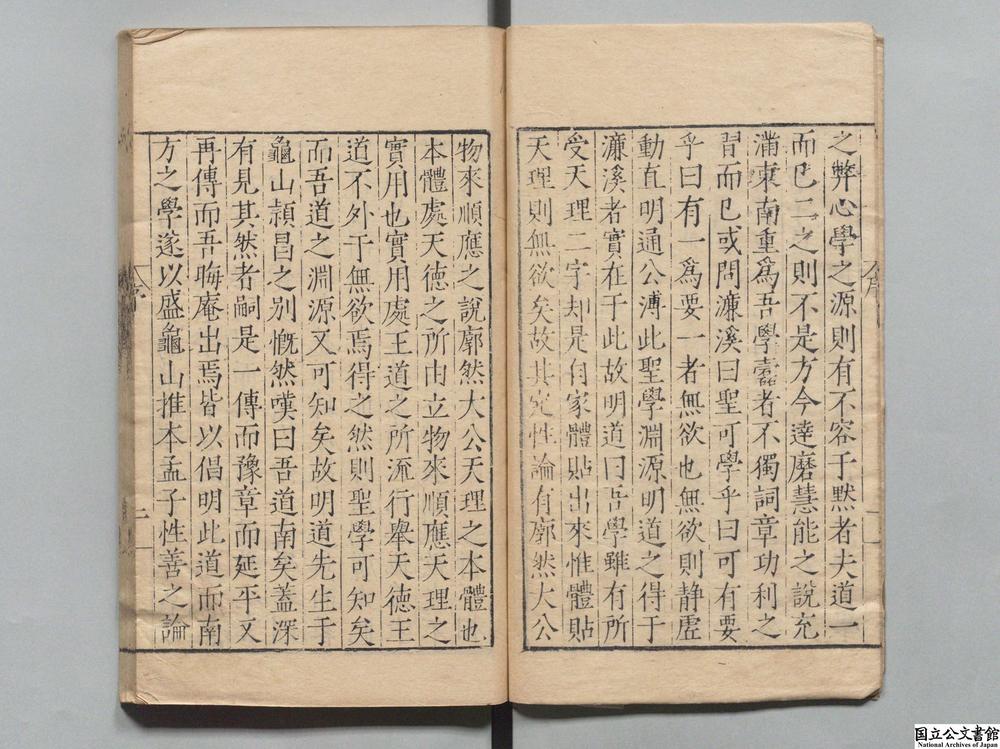 之弊心學之源則有不容于默者夫道一
而已二之則不是方今達磨慧能之說充
滿東南重爲吾學蠹者不獨詞章功利之
習而已或問濂溪曰聖可學乎曰可有要
乎曰有一爲要一者無欲也無欲則静虛
動直明通公溥此聖學淵源明道之得于
濂溪者實在于此故明道曰吾學雖有所
受天理二字却是自家體貼出來惟體貼
天理則無欲矣故其定性論有廓然大公
物來順應之說廓然大公天理之本體也
本體處天德之所由立物來順應天理之
實用也實用處王道之所流行舉天德王
道不外于無欲焉得之然則聖學可知矣
而吾道之淵源又可知矣故明道先生于
龜山頴昌之别慨然嘆曰吾道南矣蓋深
有見其然者嗣是一傳而豫章而延平又
再傳而吾晦庵出焉皆以倡明此道而南
方之學遂以盛龜山推本孟子性善之論
国立公文書館
National Archives of Japan